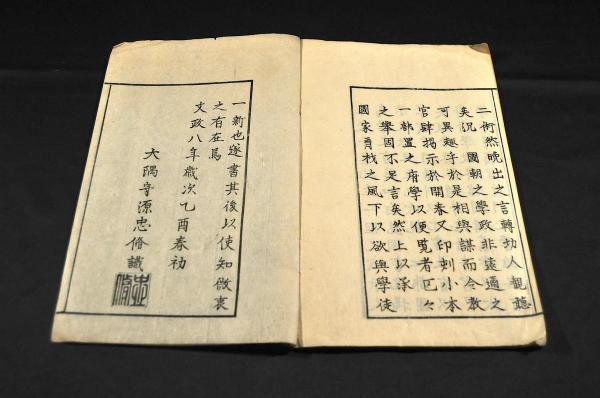 二術然晩出之言轉切人觀聽
矣況 國朝之學政非遠邇之
可異趣乎於是相與謀而令教
官肆揭示於開春又印刻小本
一部置之府學以便覽者區々
之擧固不足言矣然上以承
國家育材之風下以欲與學徒
一新也遂書其後以使知微衷
之有在焉
文政八年歳次乙酉春初
大隅守源忠脩識